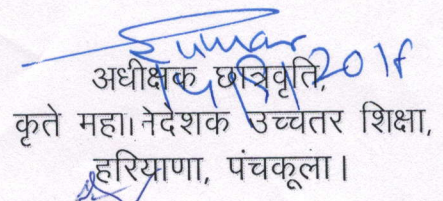 Kumar
अधीक्षक छात्रवृति,
कृते महा। नेदेशक उच्चतर शिक्षा,
हरियाणा, पंचकूला।